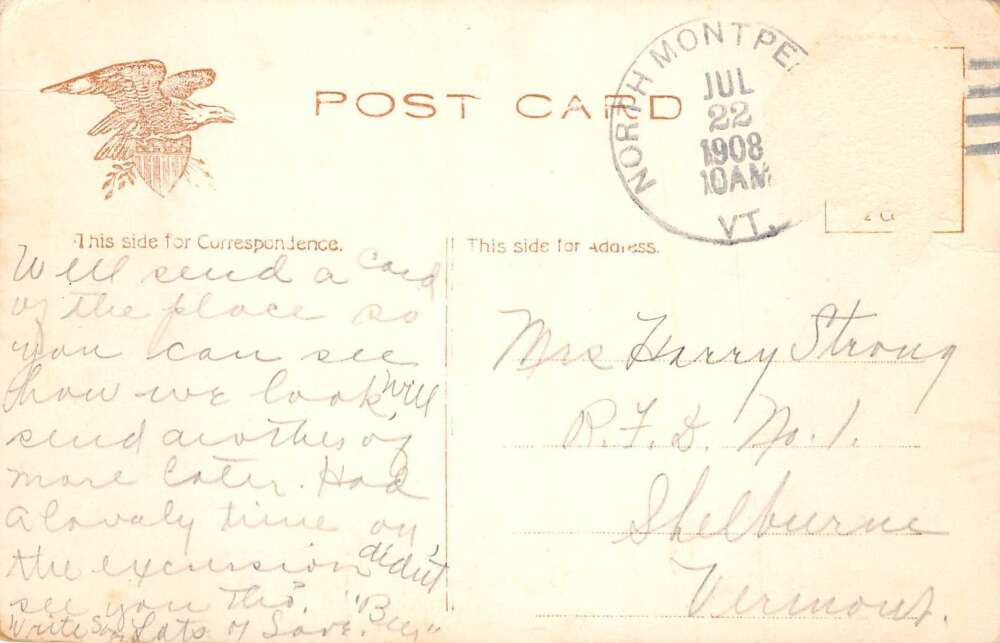 POST CARD
NORTH MONTPE
JUL
22
1908
10AM
VT.
This side for Correspondence.
This side for Address.
Will send a Card
of the place so
you can see
how we look, will
send another of
more later. Had
a lovely time on
the excursion, didn't
see you tho.
Write Soon Lots of Love.
Mrs Harry Strong
R.F.D. No. 1.
Shelburne
Vermont.